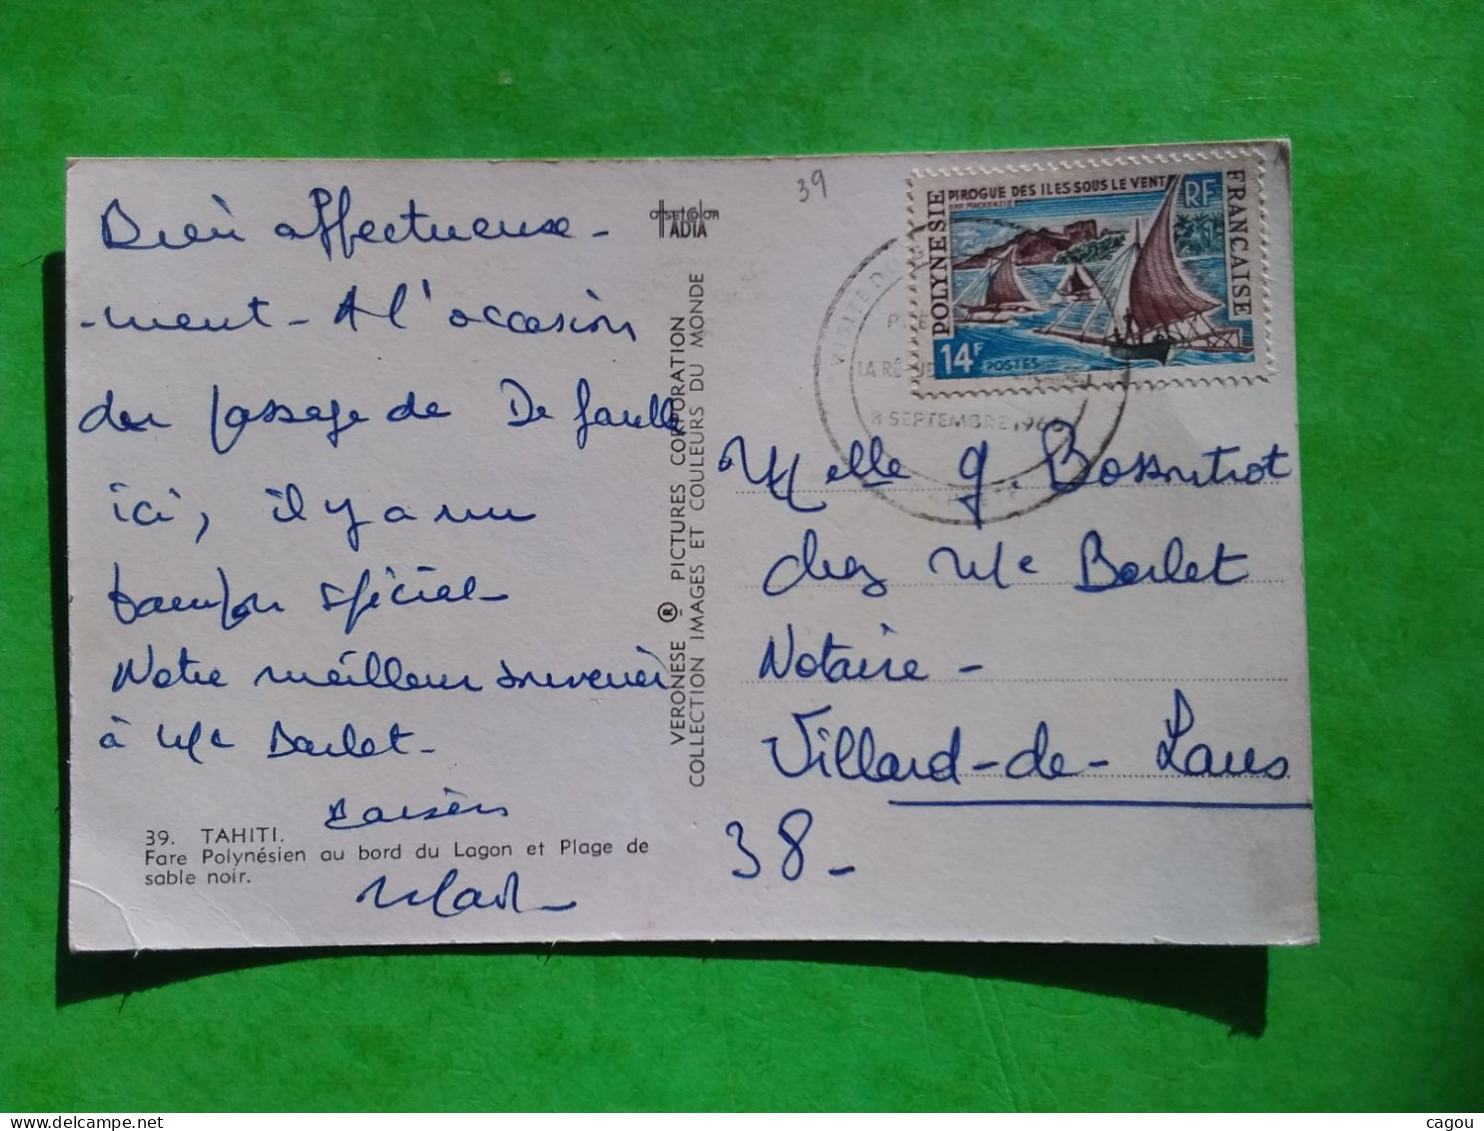 Bien affectueuse-
-ment - A l'occasion
du passage de De Gaulle
ici, il y a un
tampon spécial -
Notre meilleur souvenir
à Me Barlet -
Baisers
39. TAHITI.
Fare Polynésien au bord du Lagon et Plage de
sable noir.
offsetcolor
ADIA
VERONESE ® PICTURES CORPORATION
COLLECTION IMAGES ET COULEURS DU MONDE
39
PIROGUE DES ILES SOUS LE VENT
RF
POLYNESIE
FRANÇAISE
14F
POSTES
VISITE
LA RÉPUB
8 SEPTEMBRE 1966
Melle G. Bossutrot
chez Me Barlet
Notaire -
Villard-de-Lans
38 -
cagou